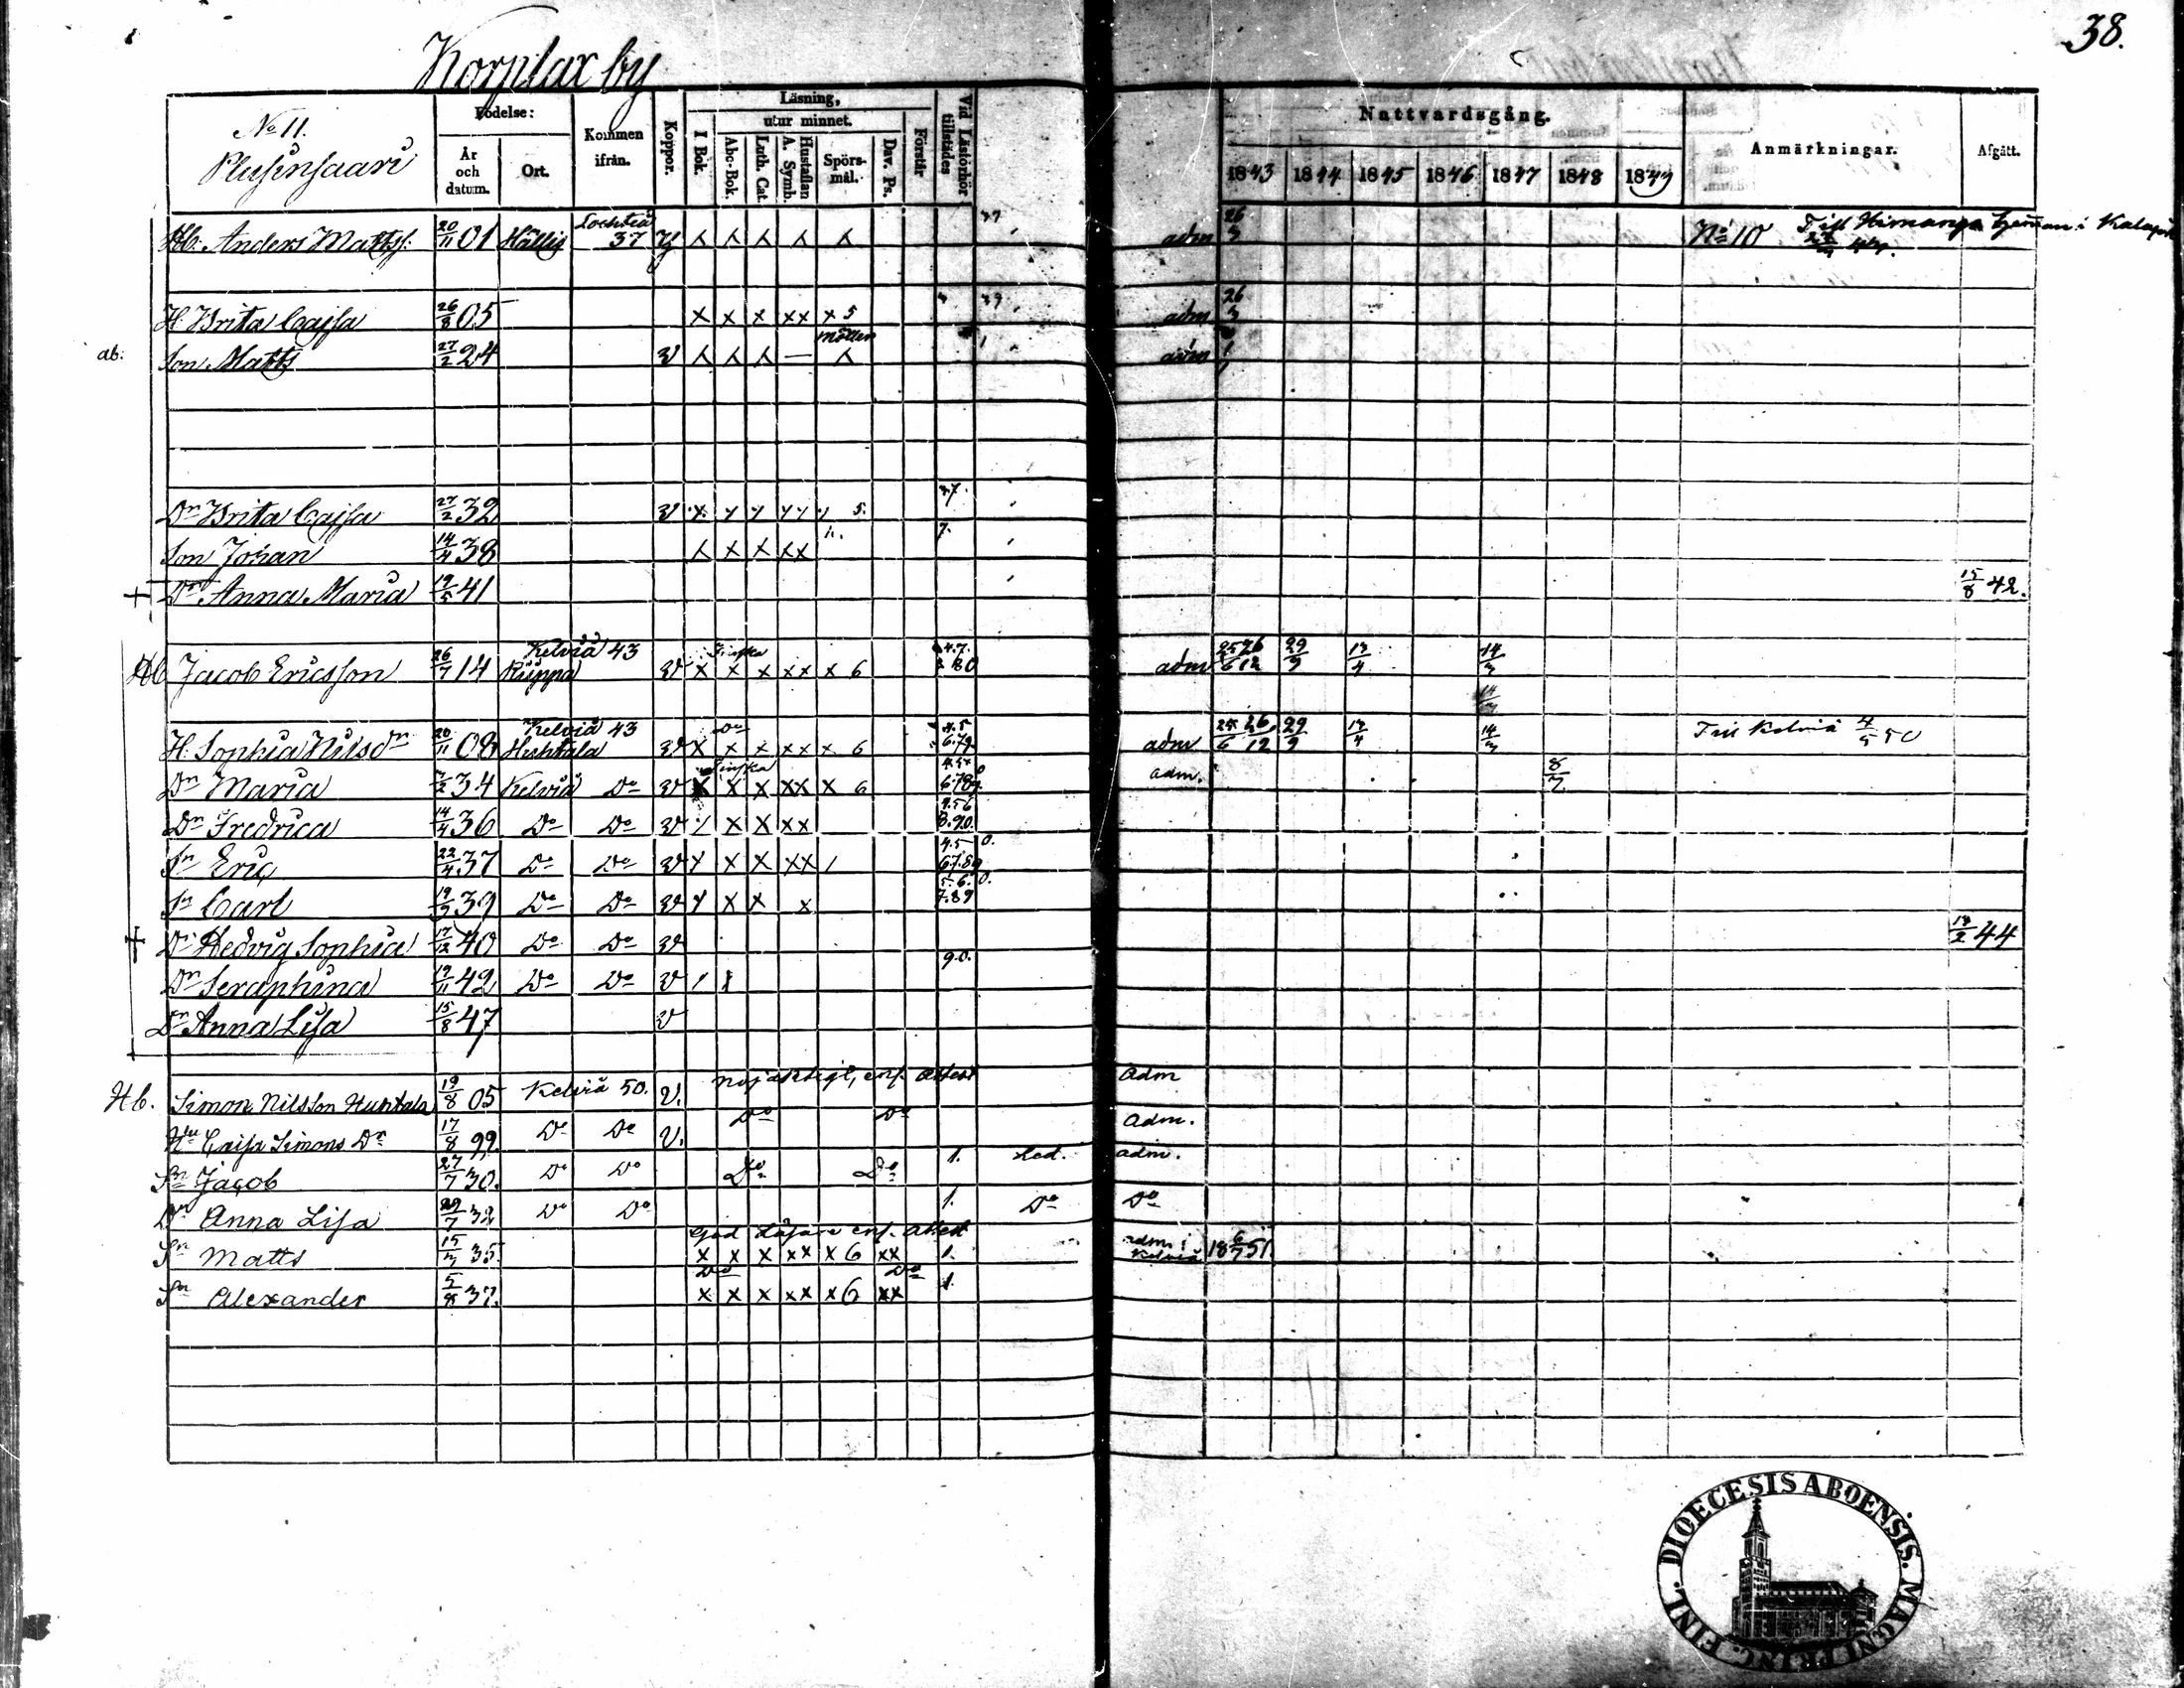 38.
Korplax by
No 11.
Plusinsaari
Födelse:
År och datum.
Ort.
Kommen ifrån.
Koppor.
Läsning,
utur minnet.
I Bok.
Abc-Bok.
Luth. Cat.
Hustaflan A. Symb.
Spörs-mål.
Dav. Ps.
Förstår
Vid Läsförhör tillstädes
Nattvardsgång.
1843 1844 1845 1846 1847 1848 1849
Anmärkningar.
Afgått.
Hb. Anders Mattss. 20/11 01 Hällis Lochteå 37 adm 26/3 No 10 Till Himanga
H. Brita Cajsa 26/8 05 x x x xx x 5 adm 26/3
ab: Son Matts 27/2 24 v adm
Dr Brita Cajsa 27/2 32 v 5.
Son Johan 14/4 38 x x xx 7.
+ Dr Anna Maria 19/5 41 15/8 42.
Hb Jacob Ericsson 26/7 14 Kelviå 43 Riippa v x x x xx x 6 adm 25/6 26/12 29/9 13/4 14/3
H. Sophia Nilsdr 20/11 08 Kelviå 43 Huhtala v x x x xx x 6 adm 25/6 26/12 29/9 13/4 14/3 Till Kelviå 4/5 50
Dr Maria 34 Kelviå Do v x x x xx x 6 adm. 8/7
Dr Fredrica 14/4 36 Do Do v / x x xx
Sn Eric 22/4 37 Do Do v x x x xx /
Sn Carl 19/3 39 Do Do v x x x x
+ Dr Hedvig Sophia 17/12 40 Do Do v 44
Dr Seraphina 19/11 42 Do Do v / 9.0.
Dr Anna Lisa 15/8 47 v
Hb. Simon Nilsson Huhtala 19/8 05 Kelviå 50. v. nöjaktigt, enl. attest Adm
Hu Caisa Simons Dr 17/8 99. Do Do v. Do Do Adm.
Sn Jacob 27/7 30. Do Do Do Do 1. Led. adm.
Dr Anna Lisa 29/7 32 Do Do 1. Do Do
Sn Matts 15/3 35. God Läsare enl. attest x x x xx x 6 xx 1. adm i Kelviå 18 6/7 51.
Sn Alexander 5/8 37. Do Do x x x xx x 6 xx 1.
DIOECESIS ABOENSIS. MAGNI PRINC. FINL.